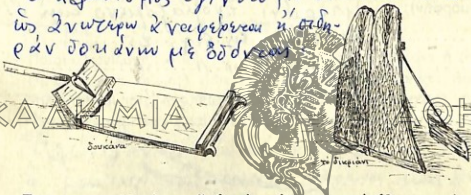 ὡς ἀνωτέρω ἀναφέρεται ἡ σιδη-
ρᾶν δοκάνω μὲ ὀδόντας
ΚΑΔΗΜΙΑ ΑΘΗ
δουκάνα
τὸ δικριάνι